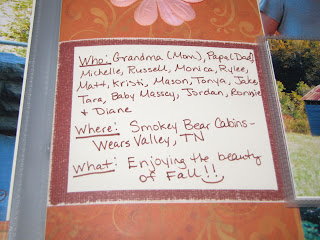 Who: Grandma (Mom), Papa (Dad),
Michelle, Russell, Monica, Rylee,
Matt, Kristi, Mason, Tonya, Jake,
Tara, Baby Massey, Jordan, Ronnie
& Diane
Where: Smokey Bear Cabins-
Wears Valley, TN
What: Enjoying the beauty
of Fall!!